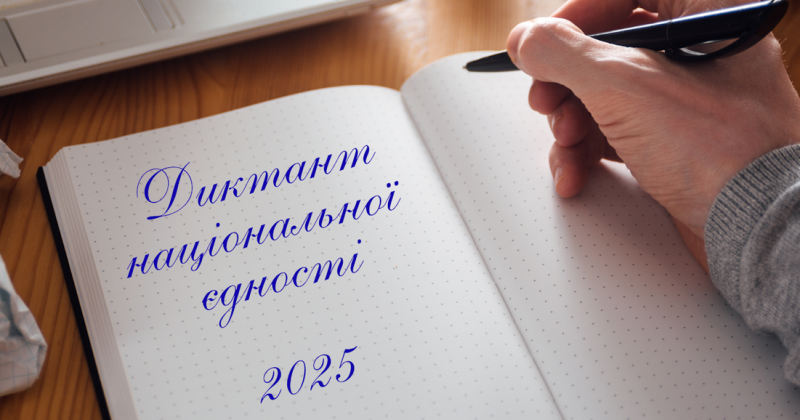 Диктант
національної
єдності
2025